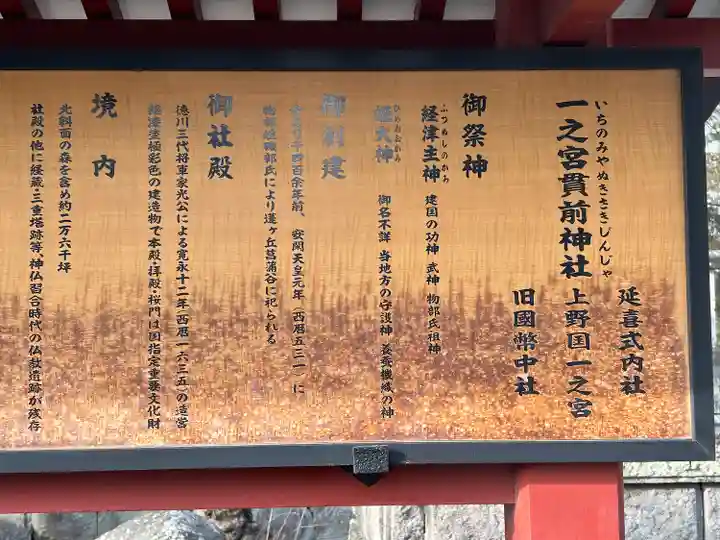 延喜式内社
いちのみや ぬきさきじんじゃ
一之宮貫前神社 上野国一之宮
旧國幣中社
御祭神
ふつぬしのかみ
経津主神 建国の功神 武神 物部氏祖神
ひめおおがみ
姫大神 御名不詳 当地方の守護神 養蚕機織の神
御創建
千四百余年前、安閑天皇元年(西暦五三一)に
物部姓磯部氏により蓬ヶ丘菖蒲谷に祀られる
御社殿
徳川三代将軍家光公による寛永十二年(西暦一六三五)の造営
総漆塗極彩色の建造物で本殿・拝殿・桜門は国指定重要文化財
境内
北斜面の森を含め約二万六千坪
社殿の他に経蔵・三重塔跡等、神仏習合時代の仏教遺跡が残存